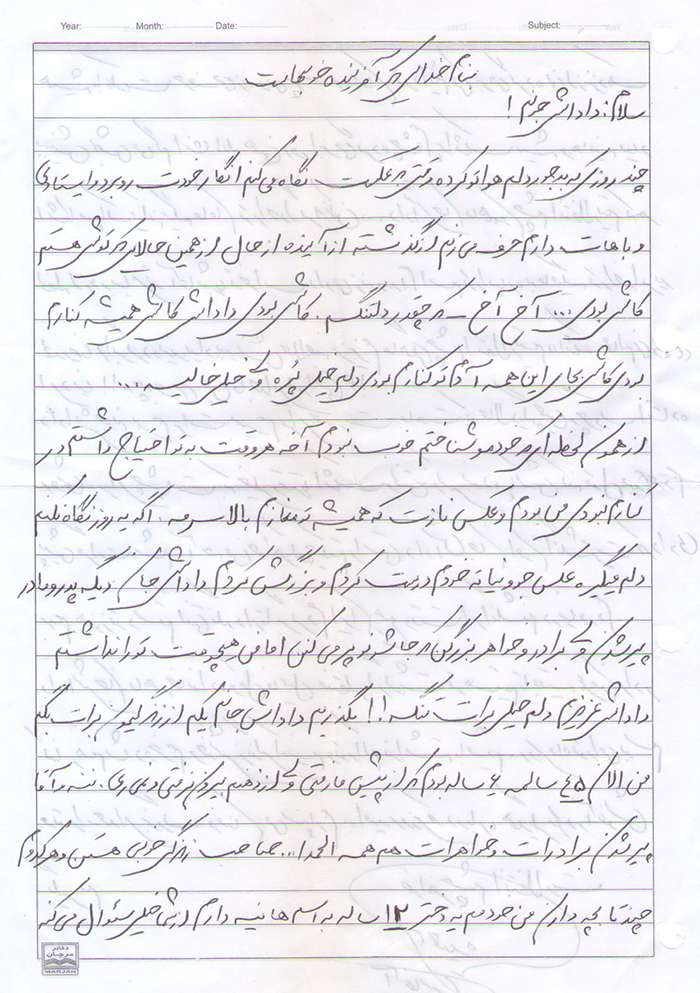 Year: Month: Date: Subject:
بنام خدایی که آفریننده خوبیهاست
سلام: داداشی جونم!
چند روزی که بدجور دلم هواتو کرده وقتی به عکست نگاه می کنم انگار خودت روبروم ایستادی
و باهات دارم حرف می زنم از گذشته از آینده از حال از همین حالایی که توش هستم
کاش بودی ... آخ آخ که چقدر دلتنگم. کاش بودی داداشی کاش همیشه کنارم
بودی کاش بجای این همه آدم تو کنارم بودی دلم خیلی پُره و خیلی خالیه ...
از همون لحظه ای که خودمو شناختم خوب نبودم آخه هر وقت به تو احتیاج داشتم در
کنارم نبودی من بودم و عکس نازت که همیشه تو مغازم بالا سرمه. اگه یه روز نگاه نکنم
دلم میگیره عکس جوونیاته خودم درست کردم و بزرگش کردم داداشی جان دیگه پدر و مادر
پیر شدن و برادر و خواهر بزرگن که جاشونو پر می کنن اما من هیچوقت تو را نداشتم
داداشی عزیزم دلم خیلی برات تنگه!! بگذریم داداشی جانم یکم از زندگیمون برات بگم
من الان ٤٥ سالمه ۶ ساله بودم که از پیش ما رفتی و از ذهنم بیرون نرفتی و نمی ری. ننه و آقا
پیر شدن برادرات و خواهرات هم همه الحمدا... صاحب زندگی خوبی هستن و هر کدوم
چند تا بچه دارن من خودمم یه دختر ١٢ ساله به اسم هانیه دارم از شما خیلی سئوال می کنه
دفاتر مرجان
MARJAN